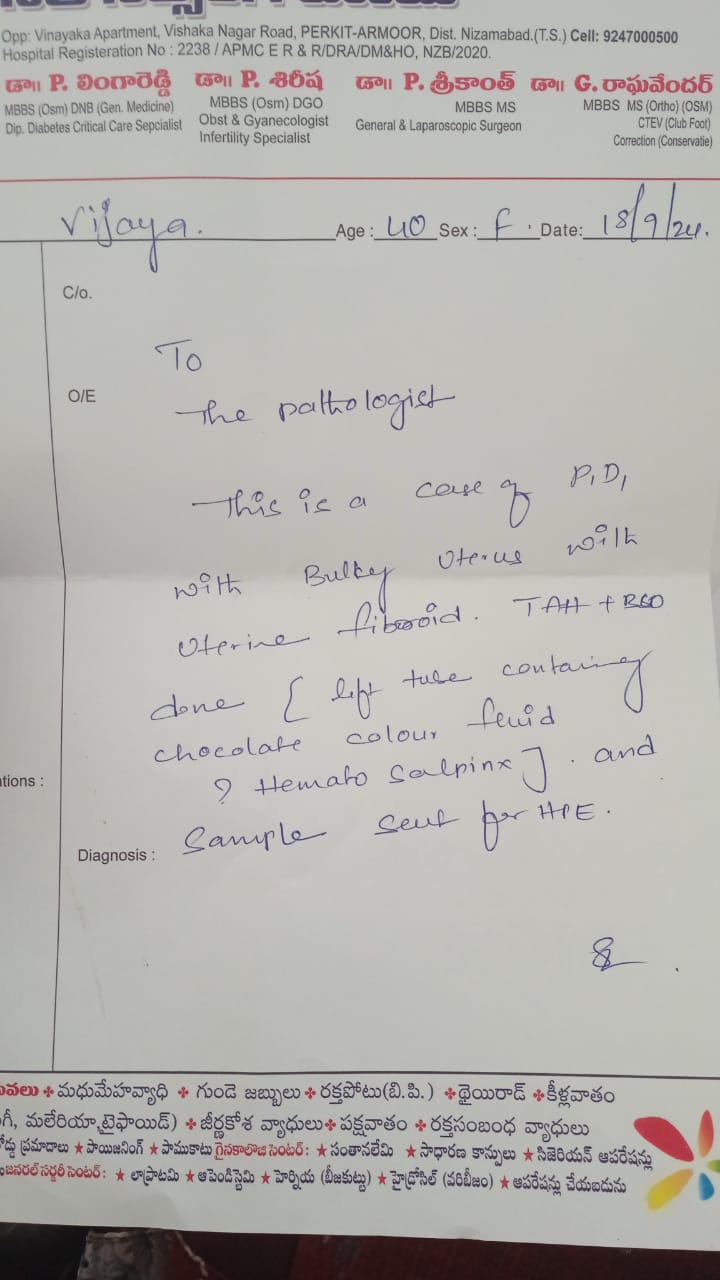 Opp: Vinayaka Apartment, Vishaka Nagar Road, PERKIT-ARMOOR, Dist. Nizamabad.(T.S.) Cell: 9247000500
Hospital Registeration No : 2238 / APMC E R & R/DRA/DM&HO, NZB/2020.
డా॥ P. లింగారెడ్డి డా॥ P. శిరీష డా॥ P. శ్రీకాంత్ డా॥ G. రాఘవేందర్
MBBS (Osm) DNB (Gen. Medicine) MBBS (Osm) DGO MBBS MS MBBS MS (Ortho) (OSM)
Dip. Diabetes Critical Care Sepcialist Obst & Gyanecologist General & Laparoscopic Surgeon CTEV (Club Foot)
Infertility Specialist Correction (Conservatie)
Vijaya. Age : 40 Sex : F. Date: 18/9/24.
C/o.
To
O/E
The pathologist
This is a case of P.I.D,
with Bulky Uterus with
Uterine fibroid. TAH + BSO
done [ left tube containing
chocolate colour fluid
? Hemato Salpinx ] . and
tions :
Sample sent for HPE.
Diagnosis :
వలు ✤ మధుమేహవ్యాధి ✤ గుండె జబ్బులు ✤ రక్తపోటు(బి.పి.) ✤ థైయిరాడ్ ✤ కీళ్లవాతం
గీ, మలేరియా,టైఫాయిడ్) ✤ జీర్ణకోశ వ్యాధులు ✤ పక్షవాతం ✤ రక్తసంబంధ వ్యాధులు
ప్రమాదాలు ★ పాయిజనింగ్ ★ పాముకాటు గైనకాలొజి సెంటర్: ★ సంతానలేమి ★ సాధారణ కాన్పులు ★ సిజెరియన్ ఆపరేషన్లు
జనరల్ సర్జరీ సెంటర్: ★ లాప్రాటమి ★ అపెండిస్టెమి ★ హెర్నియ (బీజకుట్టు) ★ హైడ్రోసిల్ (వరిబీజం) ★ ఆపరేషన్లు చేయబడును